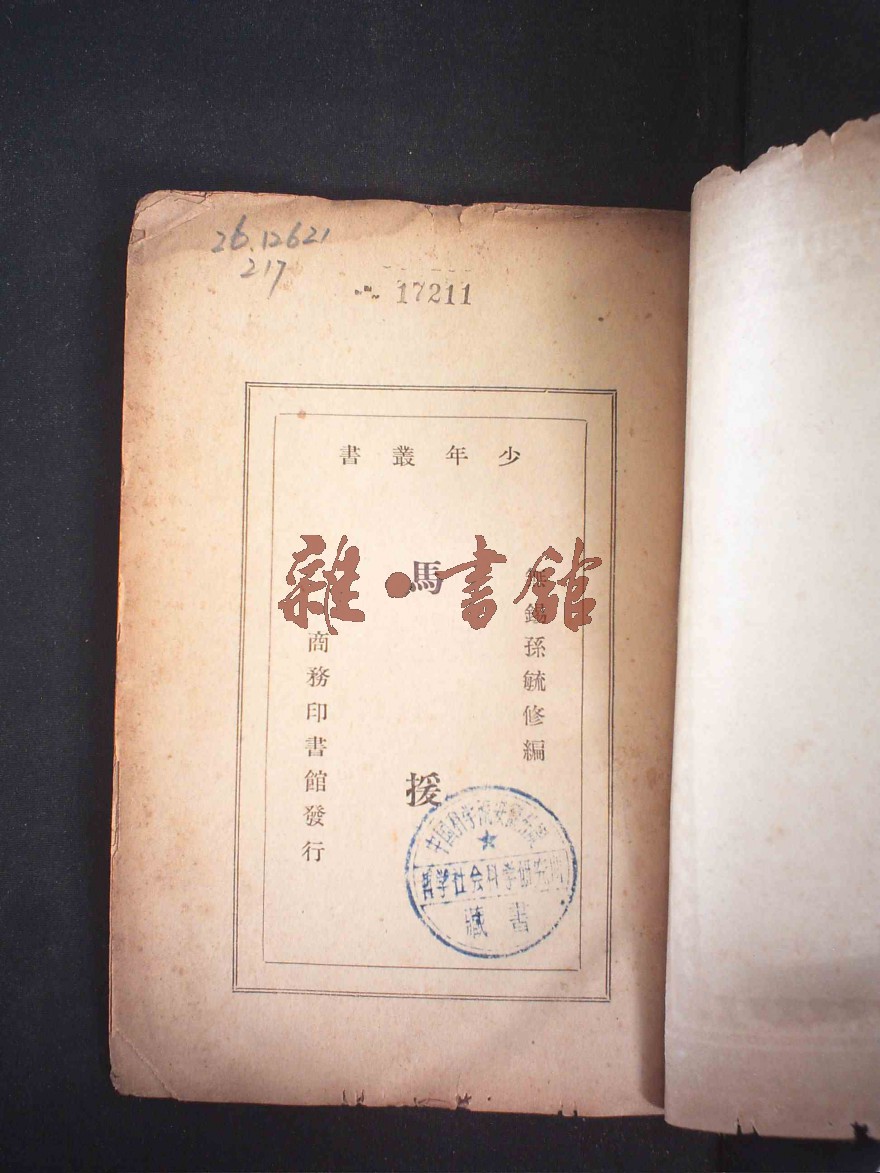 26.12621
217
17211
少年叢書
無錫孫毓修編
馬援
商務印書館發行
雜·書館
中国科学院安徽分院
哲学社会科学研究所
藏書